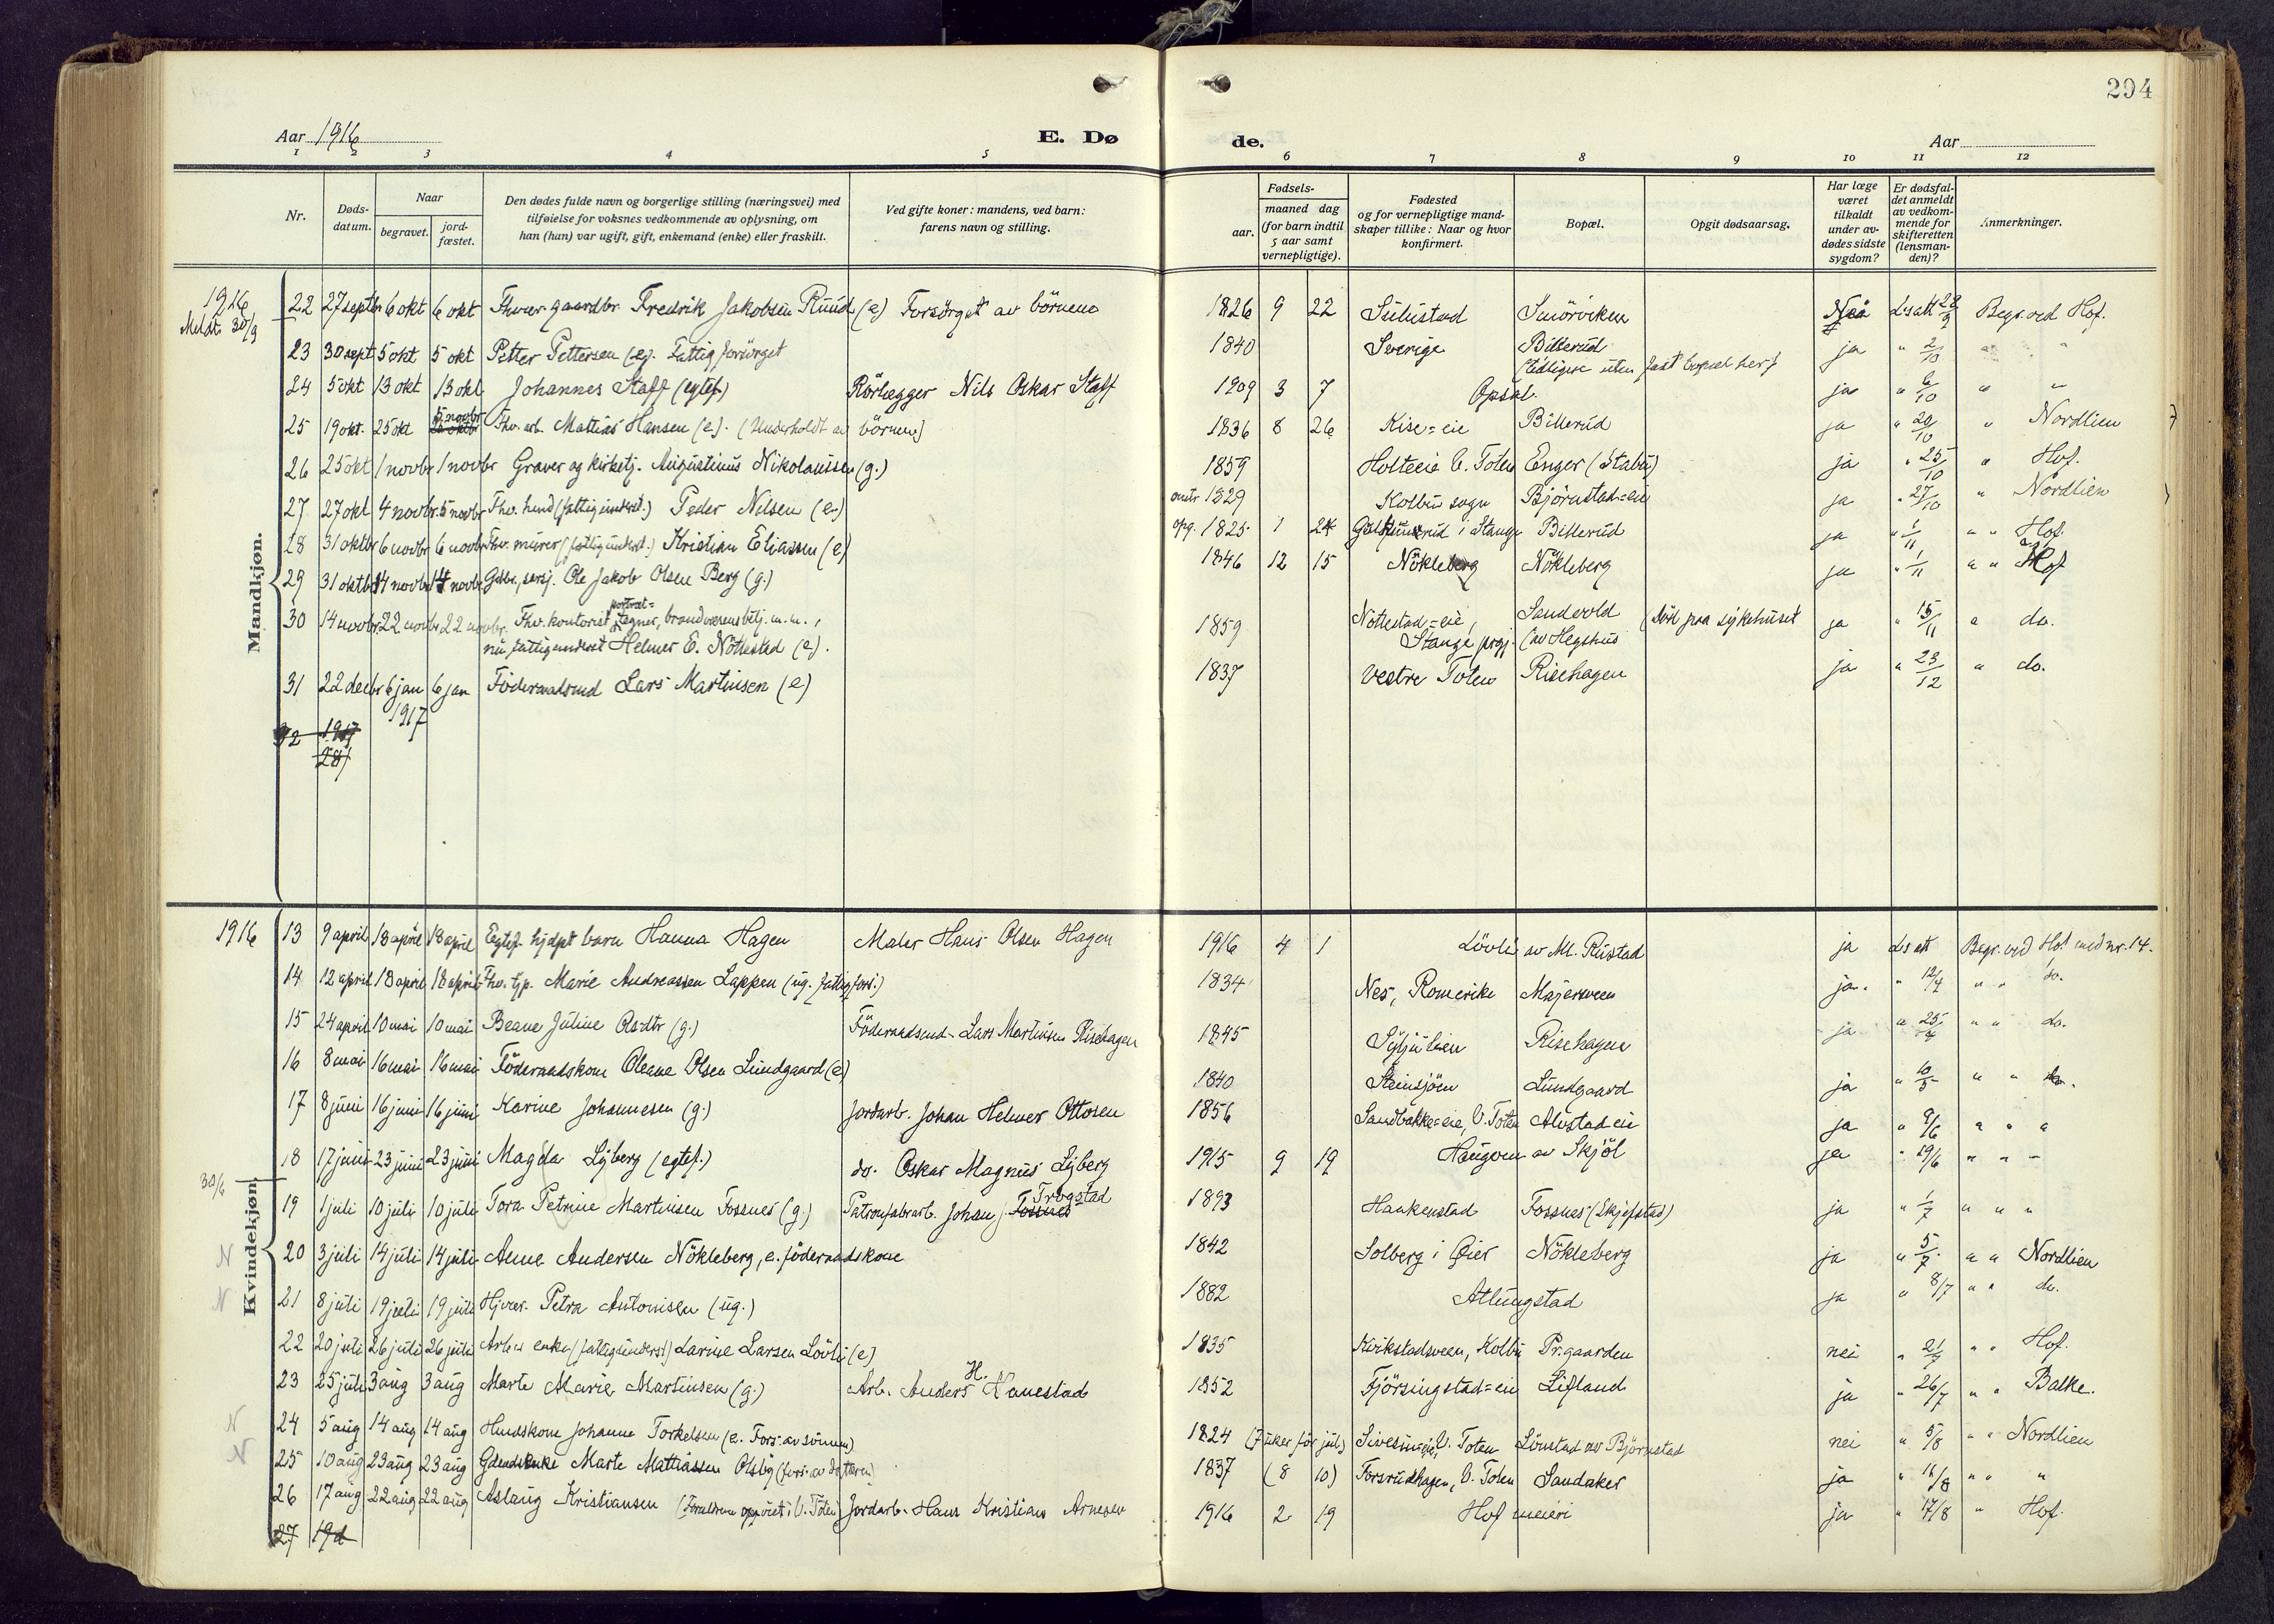 294
Aar 1916 E. Dø de. Aar
1 2 3 4 5 6 7 8 9 10 11 12
Nr. Døds-datum. Naar begravet. jord-fæstet. Den dødes fulde navn og borgerlige stilling (næringsvei) med tilføielse for voksnes vedkommende av oplysning, om han (hun) var ugift, gift, enkemand (enke) eller fraskilt. Ved gifte koner: mandens, ved barn: farens navn og stilling. Fødsels- aar. maaned dag (for barn indtil 5 aar samt vernepligtige). Fødested og for vernepligtige mandskaper tillike: Naar og hvor konfirmert. Bopæl. Opgit dødsaarsag. Har læge været tilkaldt under avdødes sidste sygdom? Er dødsfaldet anmeldt av vedkommende for skifteretten (lensmanden)? Anmerkninger.
Mandkjøn.
1916 Meldt 30/9
22 27 septbr 6 okt 6 okt Fhver. gaardbr. Fredrik Jakobsen Ruud (e) Forsörget av börnene 1826 9 22 Sulustad Smörviken Nei Ls att 28/9 Begr. ved Hof.
23 30 sept 5 okt 5 okt Petter Pettersen (eg. Fattigforsörget 1840 Sverige Billerud (tidligere uten fast bopæl her) ja " 2/10 " "
24 5 okt 13 okt 13 okt Johannes Staff (egtef.) Rörlægger Nils Oskar Staff 1909 3 7 Opsal. ja " 6/10 " "
25 19 okt. 25 okt 5 novbr Fhv. arb. Mattias Hansen (e). (Underholdt av börnene) 1836 8 26 Kise=eie Billerud ja " 20/10 " Nordlien
26 25 okt 1 novbr 1 novbr Graver og kirketj. Augustinus Nikolaisen (g.) 1859 Holteeie V. Toten Enger (Stabu) ja " 25/10 " Hof.
27 27 okt 4 novbr. 5 novbr Fhv. husmd (fattigunderst.) Peder Nilsen (e.) omtr 1829 Kolbu sogn Björnstad=eie ja " 27/10 " Nordlien
28 31 oktbr 6 novbr 6 novbr Fhv. murer (fattigunderst.) Kristian Eliassen (e) opg. 1825 1 24 i Stange Billerud ja " 1/11 " " Hof.
29 31 oktbr 14 novbr 14 novbr Gdbr., sersj. Ole Jakob Olsen Berg (g.) 1846 12 15 Nökleberg Nökleberg ja " 1/11 " " Hof
30 14 novbr 22 novbr 22 novbr. Fhv. kontorist portræt=tegner, brandvæsensbetj. m. m., nu fattigunderst Helmer E. Nöttestad (e). 1859 Nottestad=eie, Stange prgj. Sandvold (av Hegshus (död paa sykehuset ja " 15/11 " do.
31 22 decbr 6 jan 1917 6 jan Föderaadsmd Lars Martinsen (e) 1837 Vestre Toten Risehagen ja " 23/12 " do.
32 1917 28/
Kvindekjøn.
1916 13 9 april 18 april 18 april Egtef. hjdpt barn Hanna Hagen Maler Hans Olsen Hagen 1916 4 1 Lövli av M. Rustad ja Ls att Begr. ved Hof med nr. 14.
14 12 april 18 april 18 april Fhv. tjp. Marie Andreassen Lappen (ug. fattigfors.) 1834 Nes, Romerike Majersveen ja. " 12/4 " " do.
15 24 april 10 mai 10 mai Beane Juline Olsdtr (g.) Föderaadsmd. Lars Martinsen Risehagen 1845 Syljulien Risehagen ja " 25/4 " " do.
16 8 mai 16 mai 16 mai Föderaadskone Oleane Olsen Lundgaard (e) 1840 Steinsjöen Lundgaard ja " 10/5 " " do.
17 8 juni 16 juni 16 juni Karine Johannesen (g.) Jordarb. Johan Helmer Ottosen 1856 Sandbakke=eie, V. Toten Alvstad eie ja " 9/6 " " "
18 17 juni 23 juni 23 juni Magda Lyberg (egtef.) do. Oskar Magnus Lyberg 1915 9 19 Haugom av Skjöl ja " 19/6 " " "
30/6
19 1 juli 10 juli 10 juli Tora Petrine Martinsen Fossnes (g.) Patronfabrarb. Johan J. Fossnes Trogstad 1893 Hankenstad Fossnes (Skjefstad) ja " 1/7 " " "
N 20 3 juli 14 juli 14 juli Anne Andersen Nökleberg, e. föderaadskone 1842 Solberg i Øier Nökleberg ja " 5/7 " " Nordlien
N 21 8 juli 19 juli 19 juli Hjver. Petra Antonisen (ug.) 1882 Atlungstad ja " 8/7 " " do.
22 20 juli 26 juli 26 juli Arb. s enke (fattigunderst) Larine Larsen Lövli (e) 1835 Kirkstadsveen, Kolbu Pr.gaarden nei " 21/7 " " Hof.
23 25 juli 3 aug 3 aug Marte Marie Martinsen (g.) Arb. Anders H. Hanestad 1852 Fjörsingstad=eie Lifland ja " 26/7 " " Balke.
N 24 5 aug 14 aug 14 aug Husmdskone Johanne Torkelsen (e. Fors. av sönnen) 1824 (7 uker för jul.) Sivesin=eie, V. Toten Lönstad av Björnstad nei " 5/8 " " Nordlien
N 25 10 aug 23 aug 23 aug Gdmdenke Marte Mattiassen Olsby (fors. av datteren) 1837 (8 10) Forsrudhagen, V. Toten Sandaker ja " 11/8 " " "
26 17 aug 22 aug 22 aug Aslaug Kristiansen (Forældrene opgivet i V. Toten) Jordarb. Hans Kristian Arnesen 1916 2 19 Hof meieri ja " 17/8 " Hof.
27 19 d